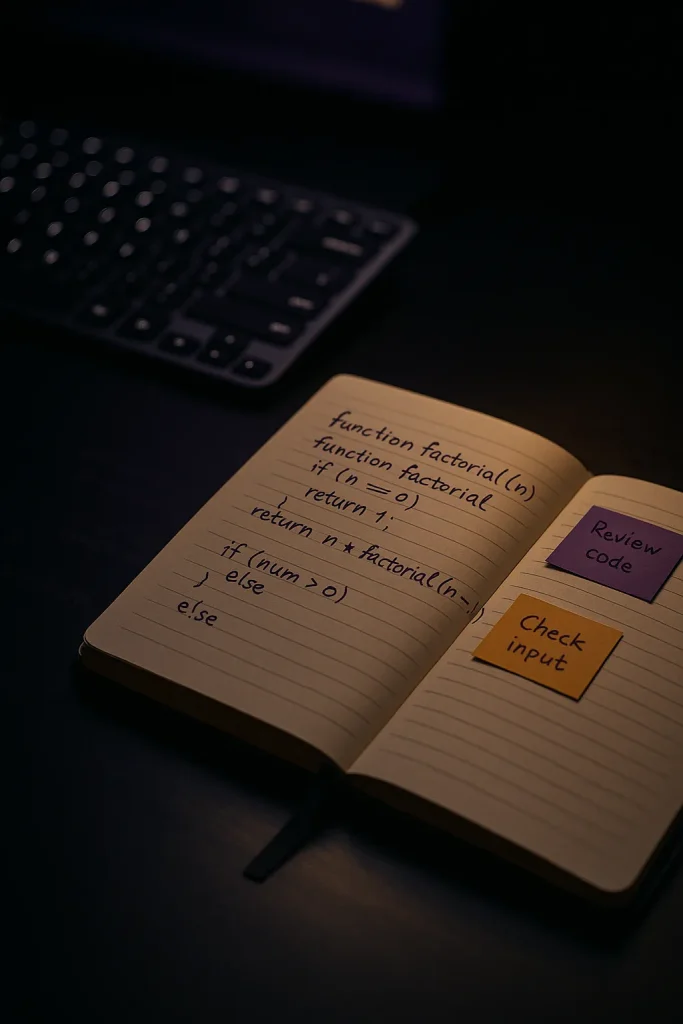 function factorial(n)
function factorial
if (n == 0)
return 1;
} return n * factorial(n-1)
if (num > 0)
} else
else
Review
code
Check
input